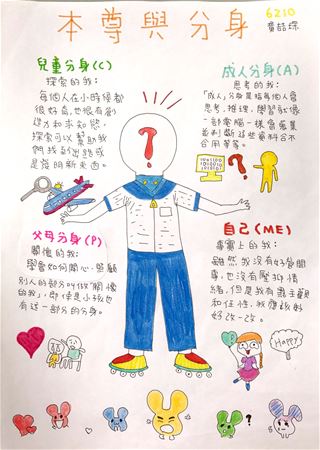 本尊與分身
6210
兒童分身(C)
探索的我:
每個人在小時候都
很好奇,也很有創
造力和求知慾,
探索可以幫助我
們找到出路或
是發明新東西。
成人分身(A)
思考的我:
「成人」分身是指每個人會
思考,推理,學習就像
一部電腦一樣會蒐集
並判斷這些資料合不
合用等等。
父母分身(P)
關懷的我:
學會如何關心、照顧
別人的部分叫做「關懷
的我」,即使是小孩也
有這一部分的分身。
自己(ME)
事實上的我:
雖然我沒有好管閒
事,也沒有壓抑情
緒,但是我有點主觀
和任性,我應該
好改一改。
Happy